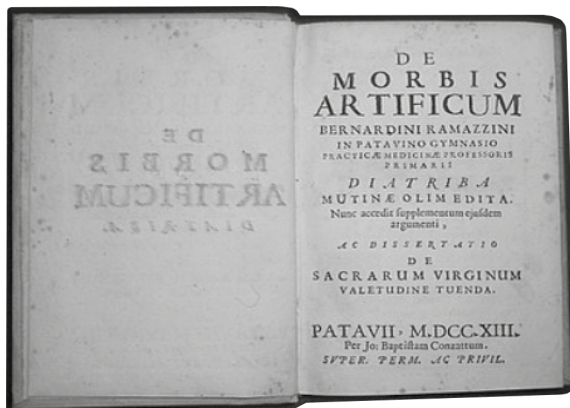 DE
MORBIS
ARTIFICUM
BERNARDINI RAMAZZINI
IN PATAVINO GYMNASIO
PRACTICÆ MEDICINÆ PROFESSORIS
PRIMARII
DIATRIBA
MUTINÆ OLIM EDITA.
Nunc accedit supplementum ejusdem
argumenti,
AC DISSERTATIO
DE
SACRARUM VIRGINUM
VALETUDINE TUENDA.
PATAVII, M.DCC.XIII.
Per Jo: Baptistam Conzattum.
SVPER. PERM. AC PRIVIL.